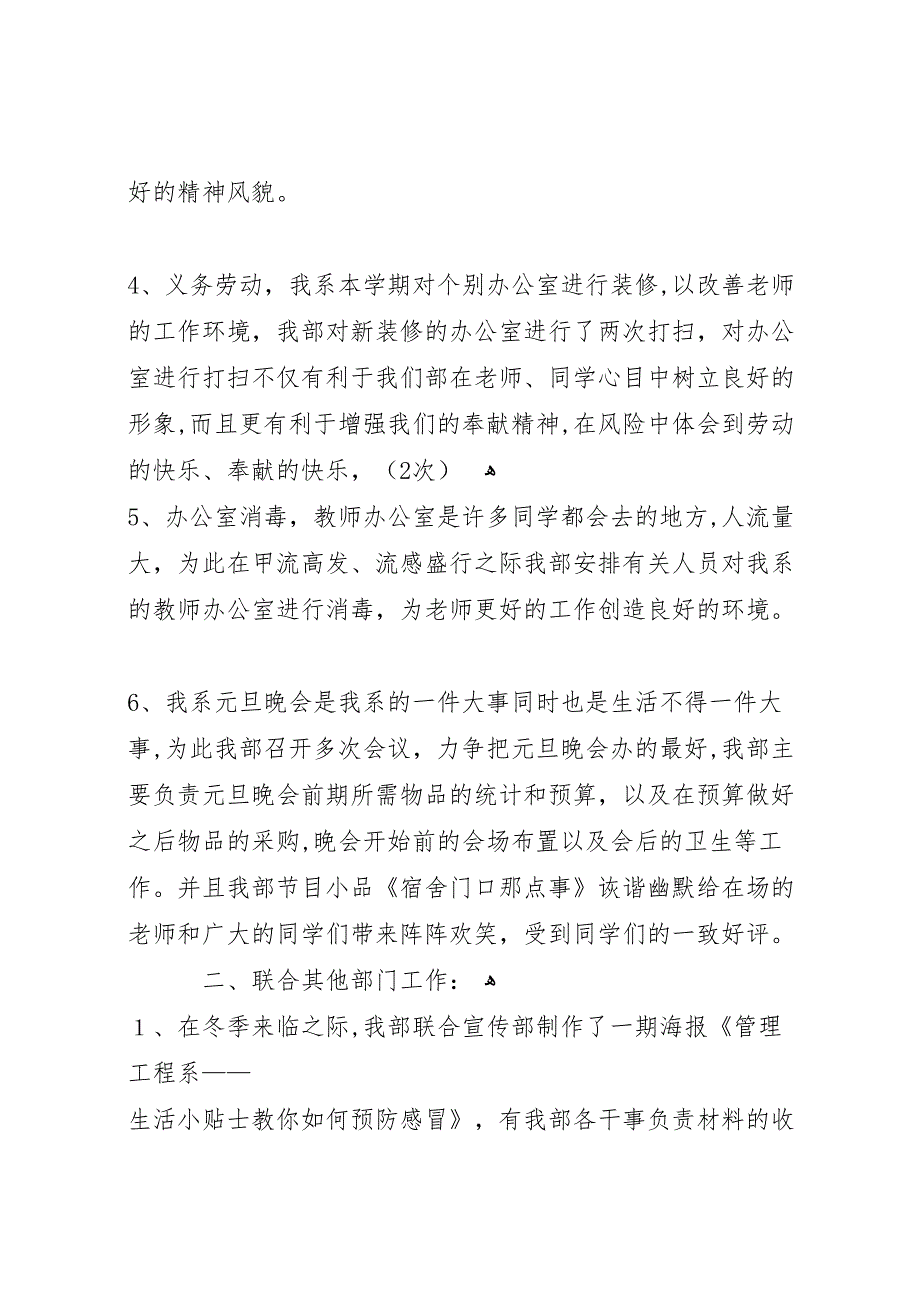 好的精神风貌。
4、义务劳动，我系本学期对个别办公室进行装修,以改善老师
的工作环境，我部对新装修的办公室进行了两次打扫，对办公
室进行打扫不仅有利于我们部在老师、同学心目中树立良好的
形象,而且更有利于增强我们的奉献精神,在风险中体会到劳动
的快乐、奉献的快乐，（2次） ﻫ
5、办公室消毒，教师办公室是许多同学都会去的地方,人流量
大，为此在甲流高发、流感盛行之际我部安排有关人员对我系
的教师办公室进行消毒，为老师更好的工作创造良好的环境。
6、我系元旦晚会是我系的一件大事同时也是生活不得一件大
事,为此我部召开多次会议，力争把元旦晚会办的最好,我部主
要负责元旦晚会前期所需物品的统计和预算，以及在预算做好
之后物品的采购,晚会开始前的会场布置以及会后的卫生等工
作。并且我部节目小品《宿舍门口那点事》诙谐幽默给在场的
老师和广大的同学们带来阵阵欢笑，受到同学们的一致好评。
二、联合其他部门工作： ﻫ
１、在冬季来临之际,我部联合宣传部制作了一期海报《管理
工程系——
生活小贴士教你如何预防感冒》，有我部各干事负责材料的收